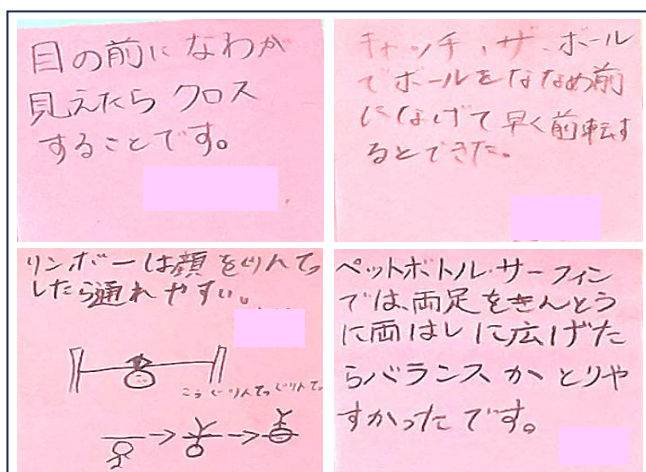 目の前になわが
見えたら クロス
することです。
キャッチ、ザ、ボール
でボールをななめ前
になげて早く前転す
るとできた。
リンボーは顔をぐりんてっ
したら通れやすい。
こう ぐりんてっ ぐりんてっ
ペットボトル・サーフィン
では、両足をきんとう
に両はしに広げた
らバランスがとりや
すかったです。